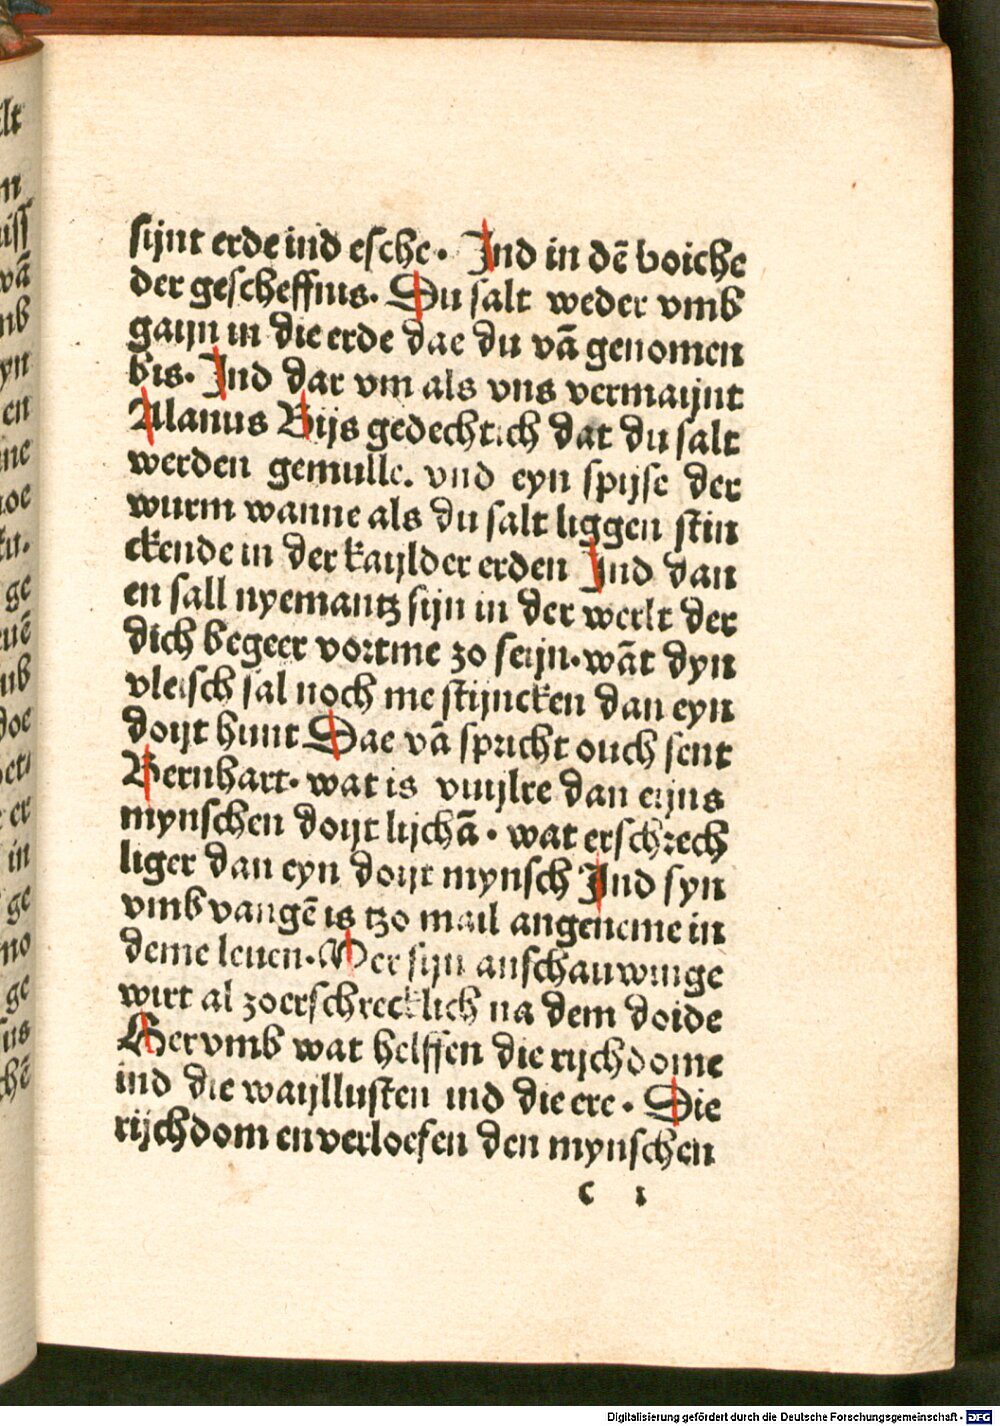 sijnt erde ind esche. Ind in dē boiche
der gescheffnis. Du salt weder vmb
gaijn in die erde dae du vā genomen
bis. Ind dar vm als vns vermaijnt
Alanus Bijs gedechtich dat du salt
werden gemulle. vnd eyn spijse der
wurm wanne als du salt liggen stin
ckende in der kaijlder erden Ind dan
en sall nyemantz sijn in der werlt der
dich begeer vortme zo seijn. wāt dyn
vleisch sal noch me stijncken dan eyn
doijt hunt Dae vā spricht ouch sent
Bernhart. wat is vuijlre dan eijns
mynschen doijt lijchā. wat erschrech
liger dan eyn doijt mynsch Ind syn
vmbvangē is tzo mail angeneme in
deme leuen. Mer sijn anschauwinge
wirt al zoerschrecklich na dem doide
Hervmb wat helffen die rijchdome
ind die waijllusten ind die ere. Die
rijchdom en verloesen den mynschen
c i
Digitalisierung gefördert durch die Deutsche Forschungsgemeinschaft - DFG